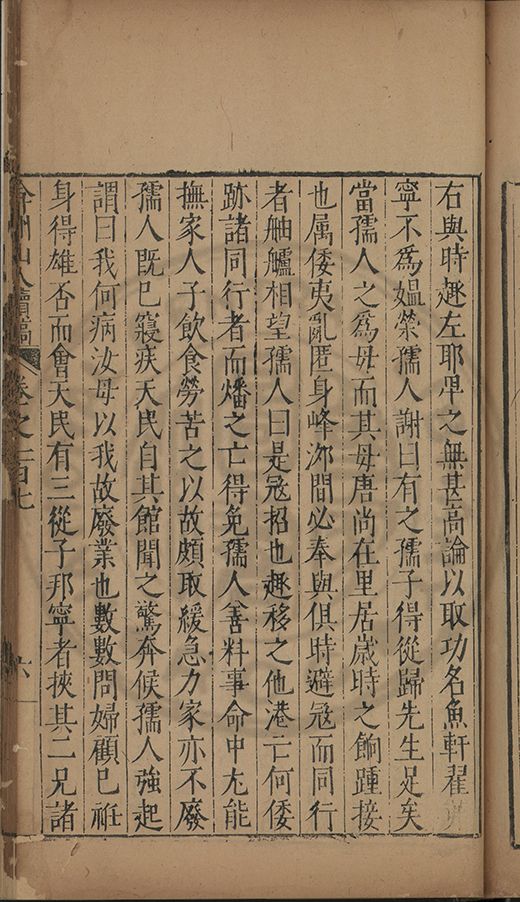 右與時趣左耶卑之無甚高論以取功名魚軒翟
寧不為媼榮孺人謝曰有之孺子得從歸先生足矣
當孺人之為母而其母唐尚在里居歲時之餉踵接
也属倭夷亂匿身峰泖間必奉與俱時避冦而同行
者舳艫相望孺人曰是冦招也趣移之他港亡何倭
跡諸同行者而燔之亡得免孺人善料事命中尤能
撫家人子飲食勞苦之以故頗取緩急力家亦不廢
孺人既已寢疾天民自其館聞之驚奔候孺人強起
謂曰我何病汝母以我故廢業也數數問婦顧已祍
身得雄否而會天民有三從子邦寧者挾其二兄諸
弇州山人續稿 卷之一百七 六